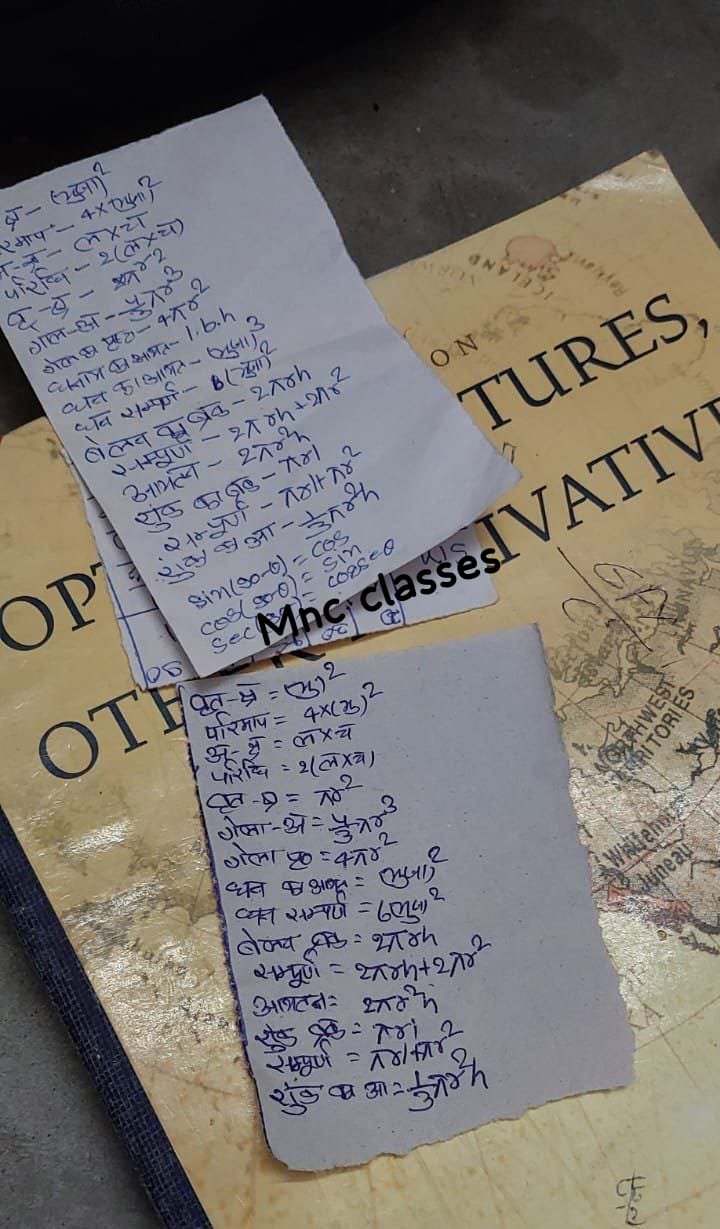 क्षे - (भुजा)²
परिमाप - 4×(भुजा)²
ल×चौ
परिधि - 2(ल×चौ)
वृ-क्षे - 2πr²
गोला-आ - 4/3πr³
गोला का पृष्ठ - 4πr²
घनाभ का आयतन - l.b.h
घन का आयतन - (भुजा)³
घन सम्पूर्ण - 6(भुजा)²
बेलन का वक्र - 2πrh
सम्पूर्ण - 2πrh+2πr²
आयतन - 2πr²h
शंकु का वक्र - πrl
सम्पूर्ण - πrl+πr²
शंकु का आ - 1/3πr²h
sin(90-θ) = cos
cos(90-θ) = sin
sec = cosecθ
Mnc classes
ON
TURES,
OP IVATIV
OTHER
ICELAND
NORTHWEST
TERRITORIES
Juneau
वृत-क्षे = (भु)²
परिमाप = 4×(भु)²
= ल×च
परिधि = 2(ल×च)
वृत-क्षे = πr²
गोला-आ = 4/3πr³
गोला पृष्ठ = 4πr²
घन का आयतन = (भुजा)²
घन सम्पूर्ण = 6(भुजा)²
बेलन वक्र = 2πrh
सम्पूर्ण = 2πrh+2πr²
आयतन = 2πr²h
शंकु वक्र = πrl
सम्पूर्ण = πrl+πr²
शंकु का आ = 1/3πr²h